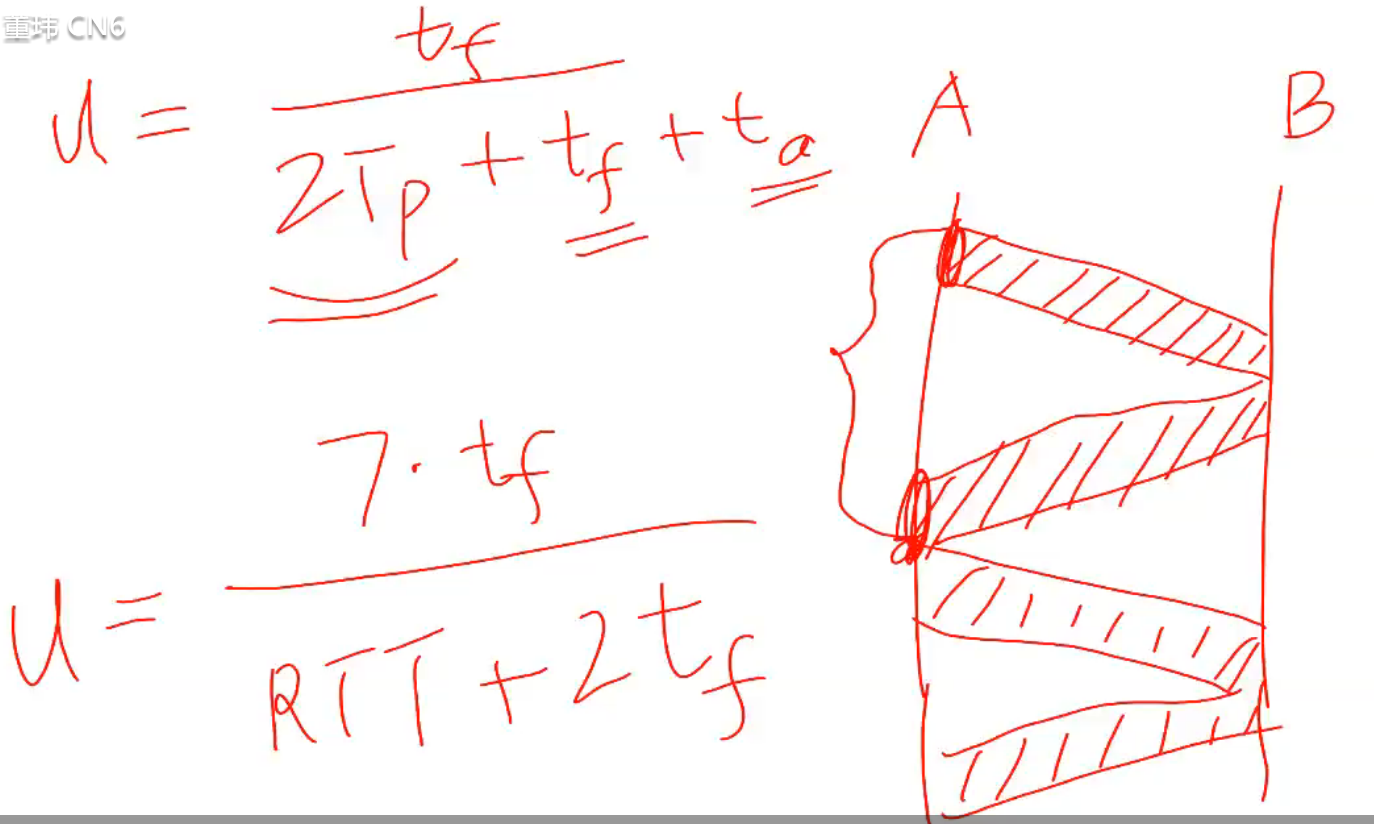 重玮 CN6
u = t_f / (2T_p + t_f + t_a)
A
B
u = 7 · t_f / (RTT + 2t_f)